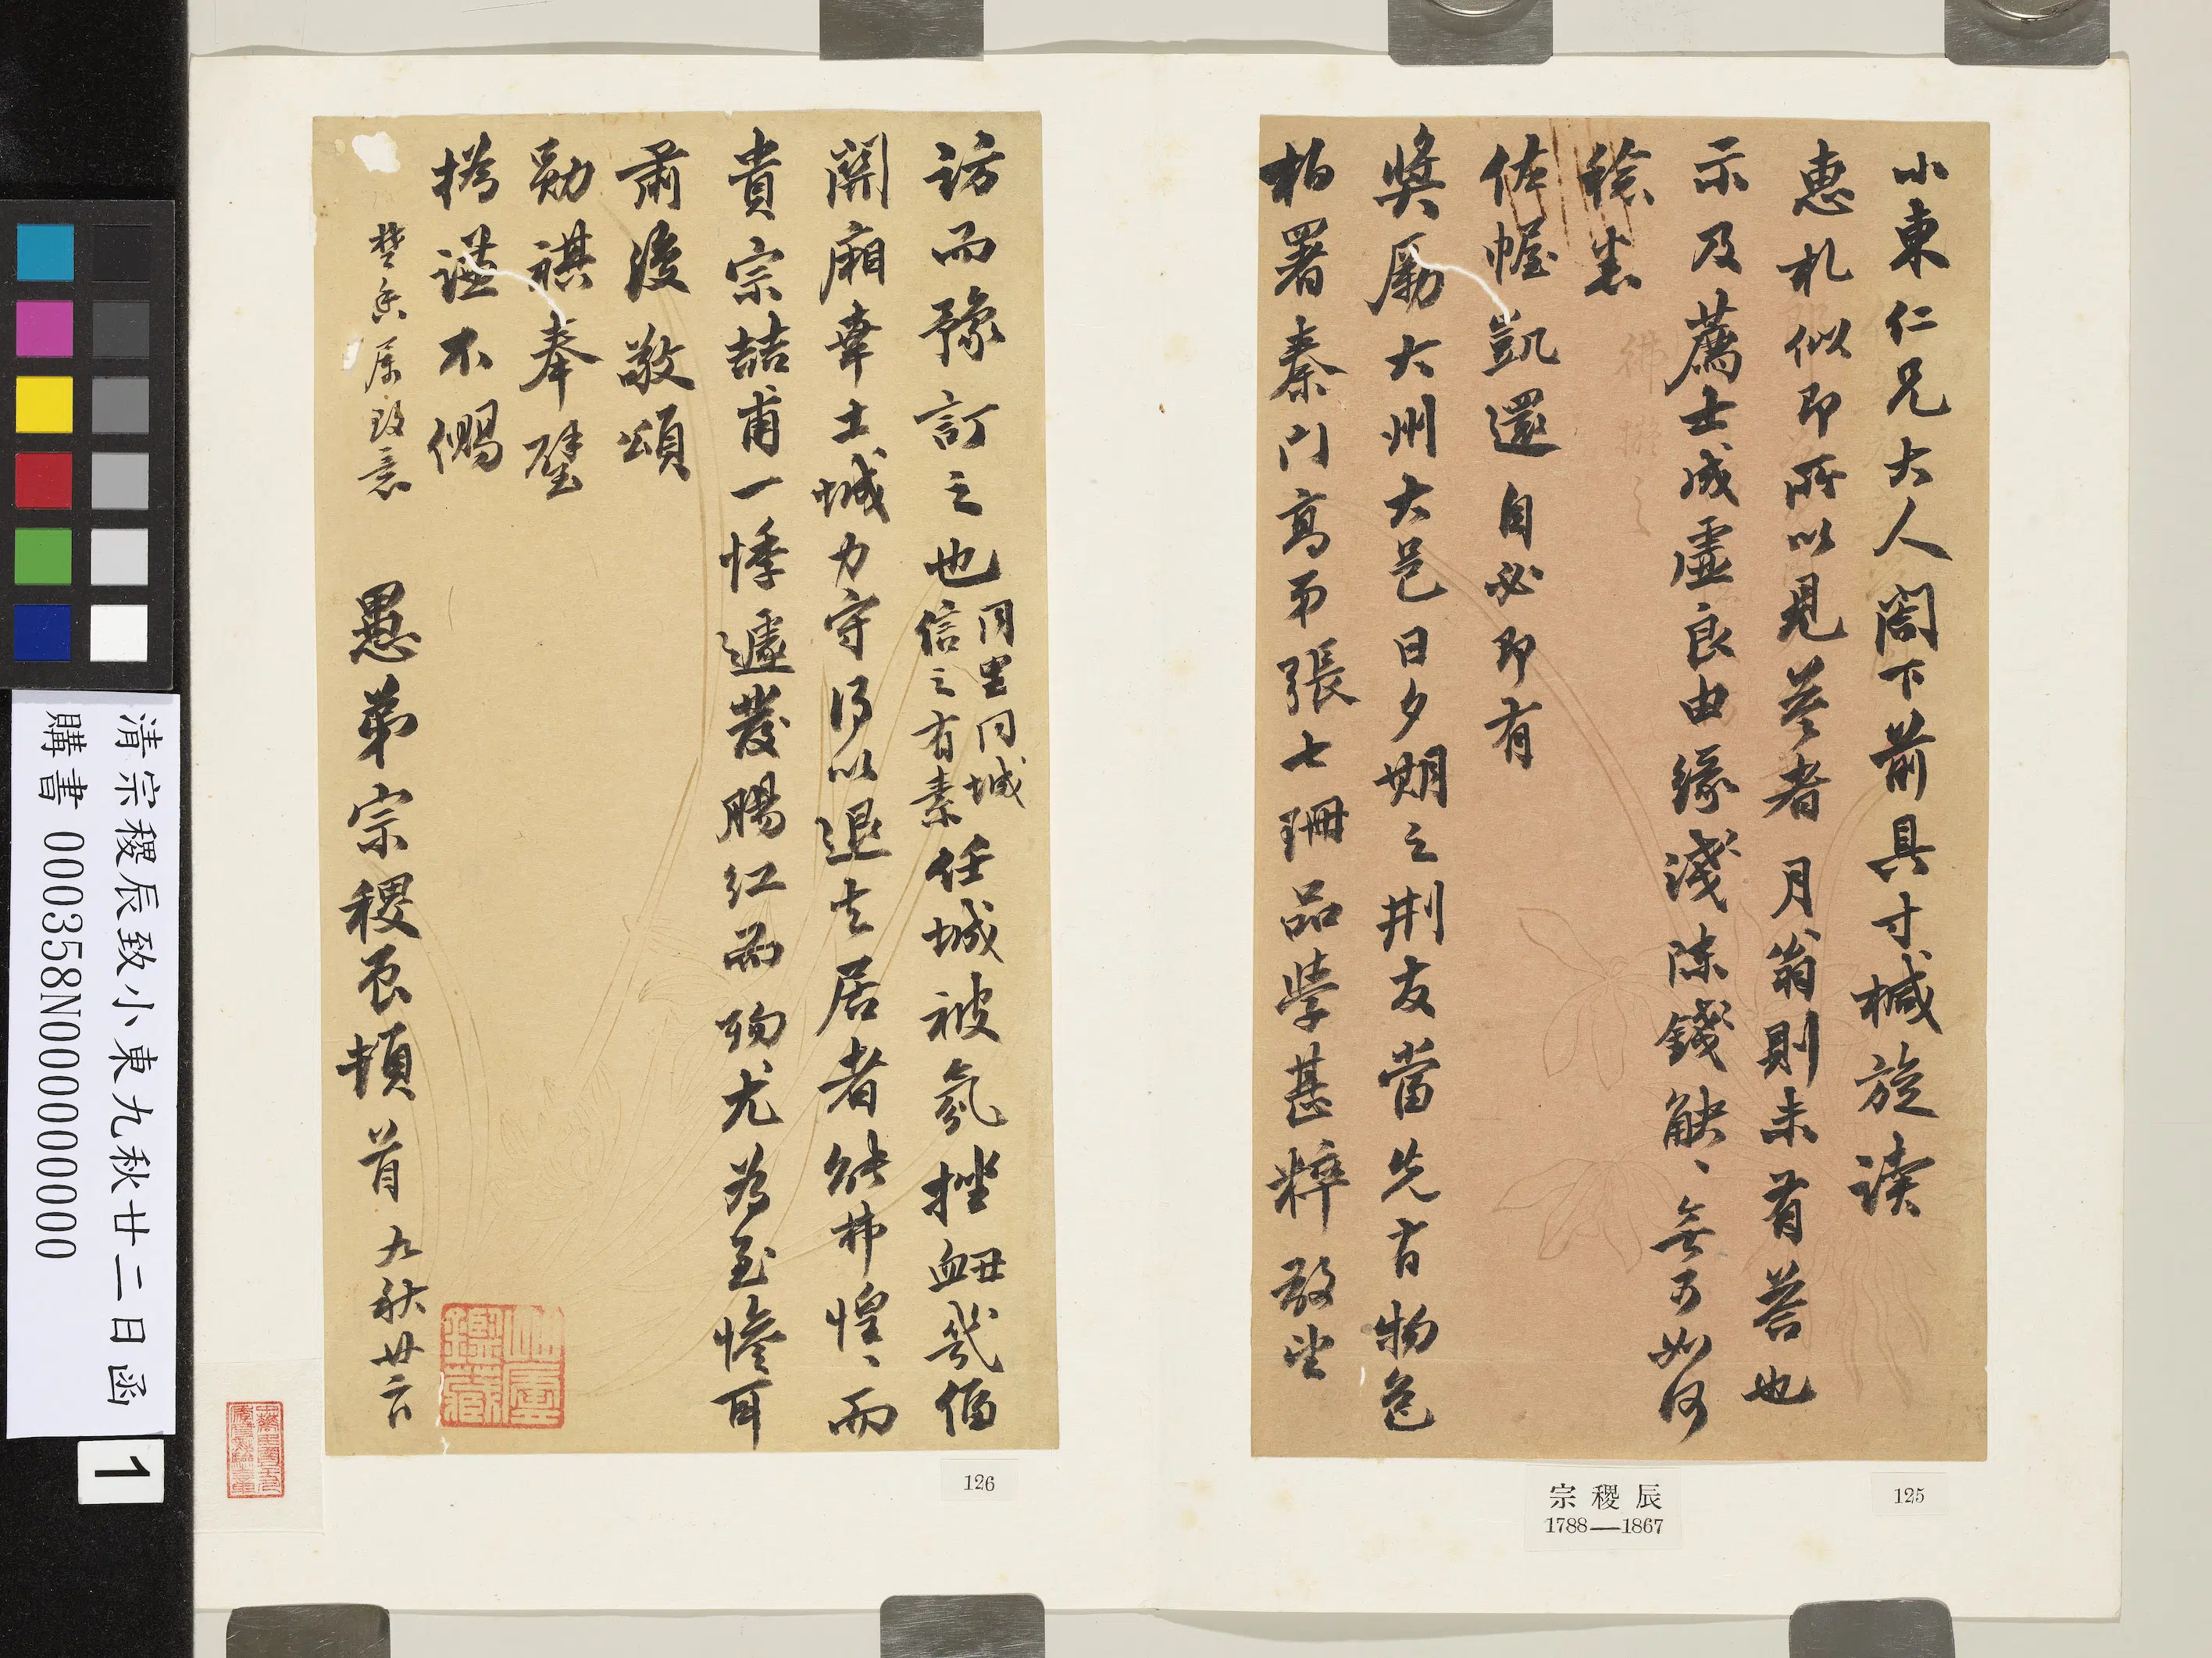 小東仁兄大人閣下前具寸椷旋读
惠札似即所以見答者月翁則未有荅也
示及薦士成虛良由緣淺陳錢觖、無可如何
徐患
佐幄凱還自必即有
奬勵大州大邑日夕期之荆友當先有物色
柏署秦门高弟張七珊品學甚粹敢望
125
宗稷辰
1788—1867
訪而豫訂之也同里同城
信之有素任城被氛挫衄幾偪
關廂幸土城力守得以退去居者能弗惶、而
貴宗喆甫一悸遽發腸紅而殉尤为至慘耳
肅復敬頌
勛祺奉璧
撝谦不僃
愚弟宗稷辰頓首九秋廿二日
楚香属致意
126
清宗稷辰致小東九秋廿二日函
購書 000358N000000000
1